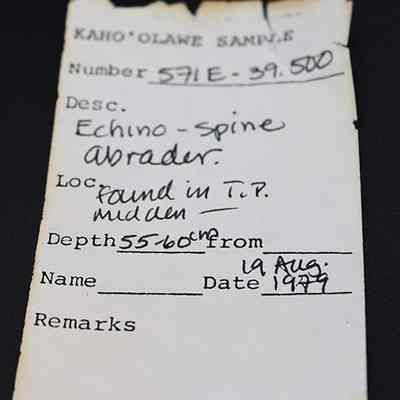 KAHO'OLAWE SAMPLE
Number 571E-39.500
Desc.
Echino-spine
abrader.
Loc. found in T.P.
midden —
Depth 55-60cm from
Name Date 19 Aug. 1979
Remarks